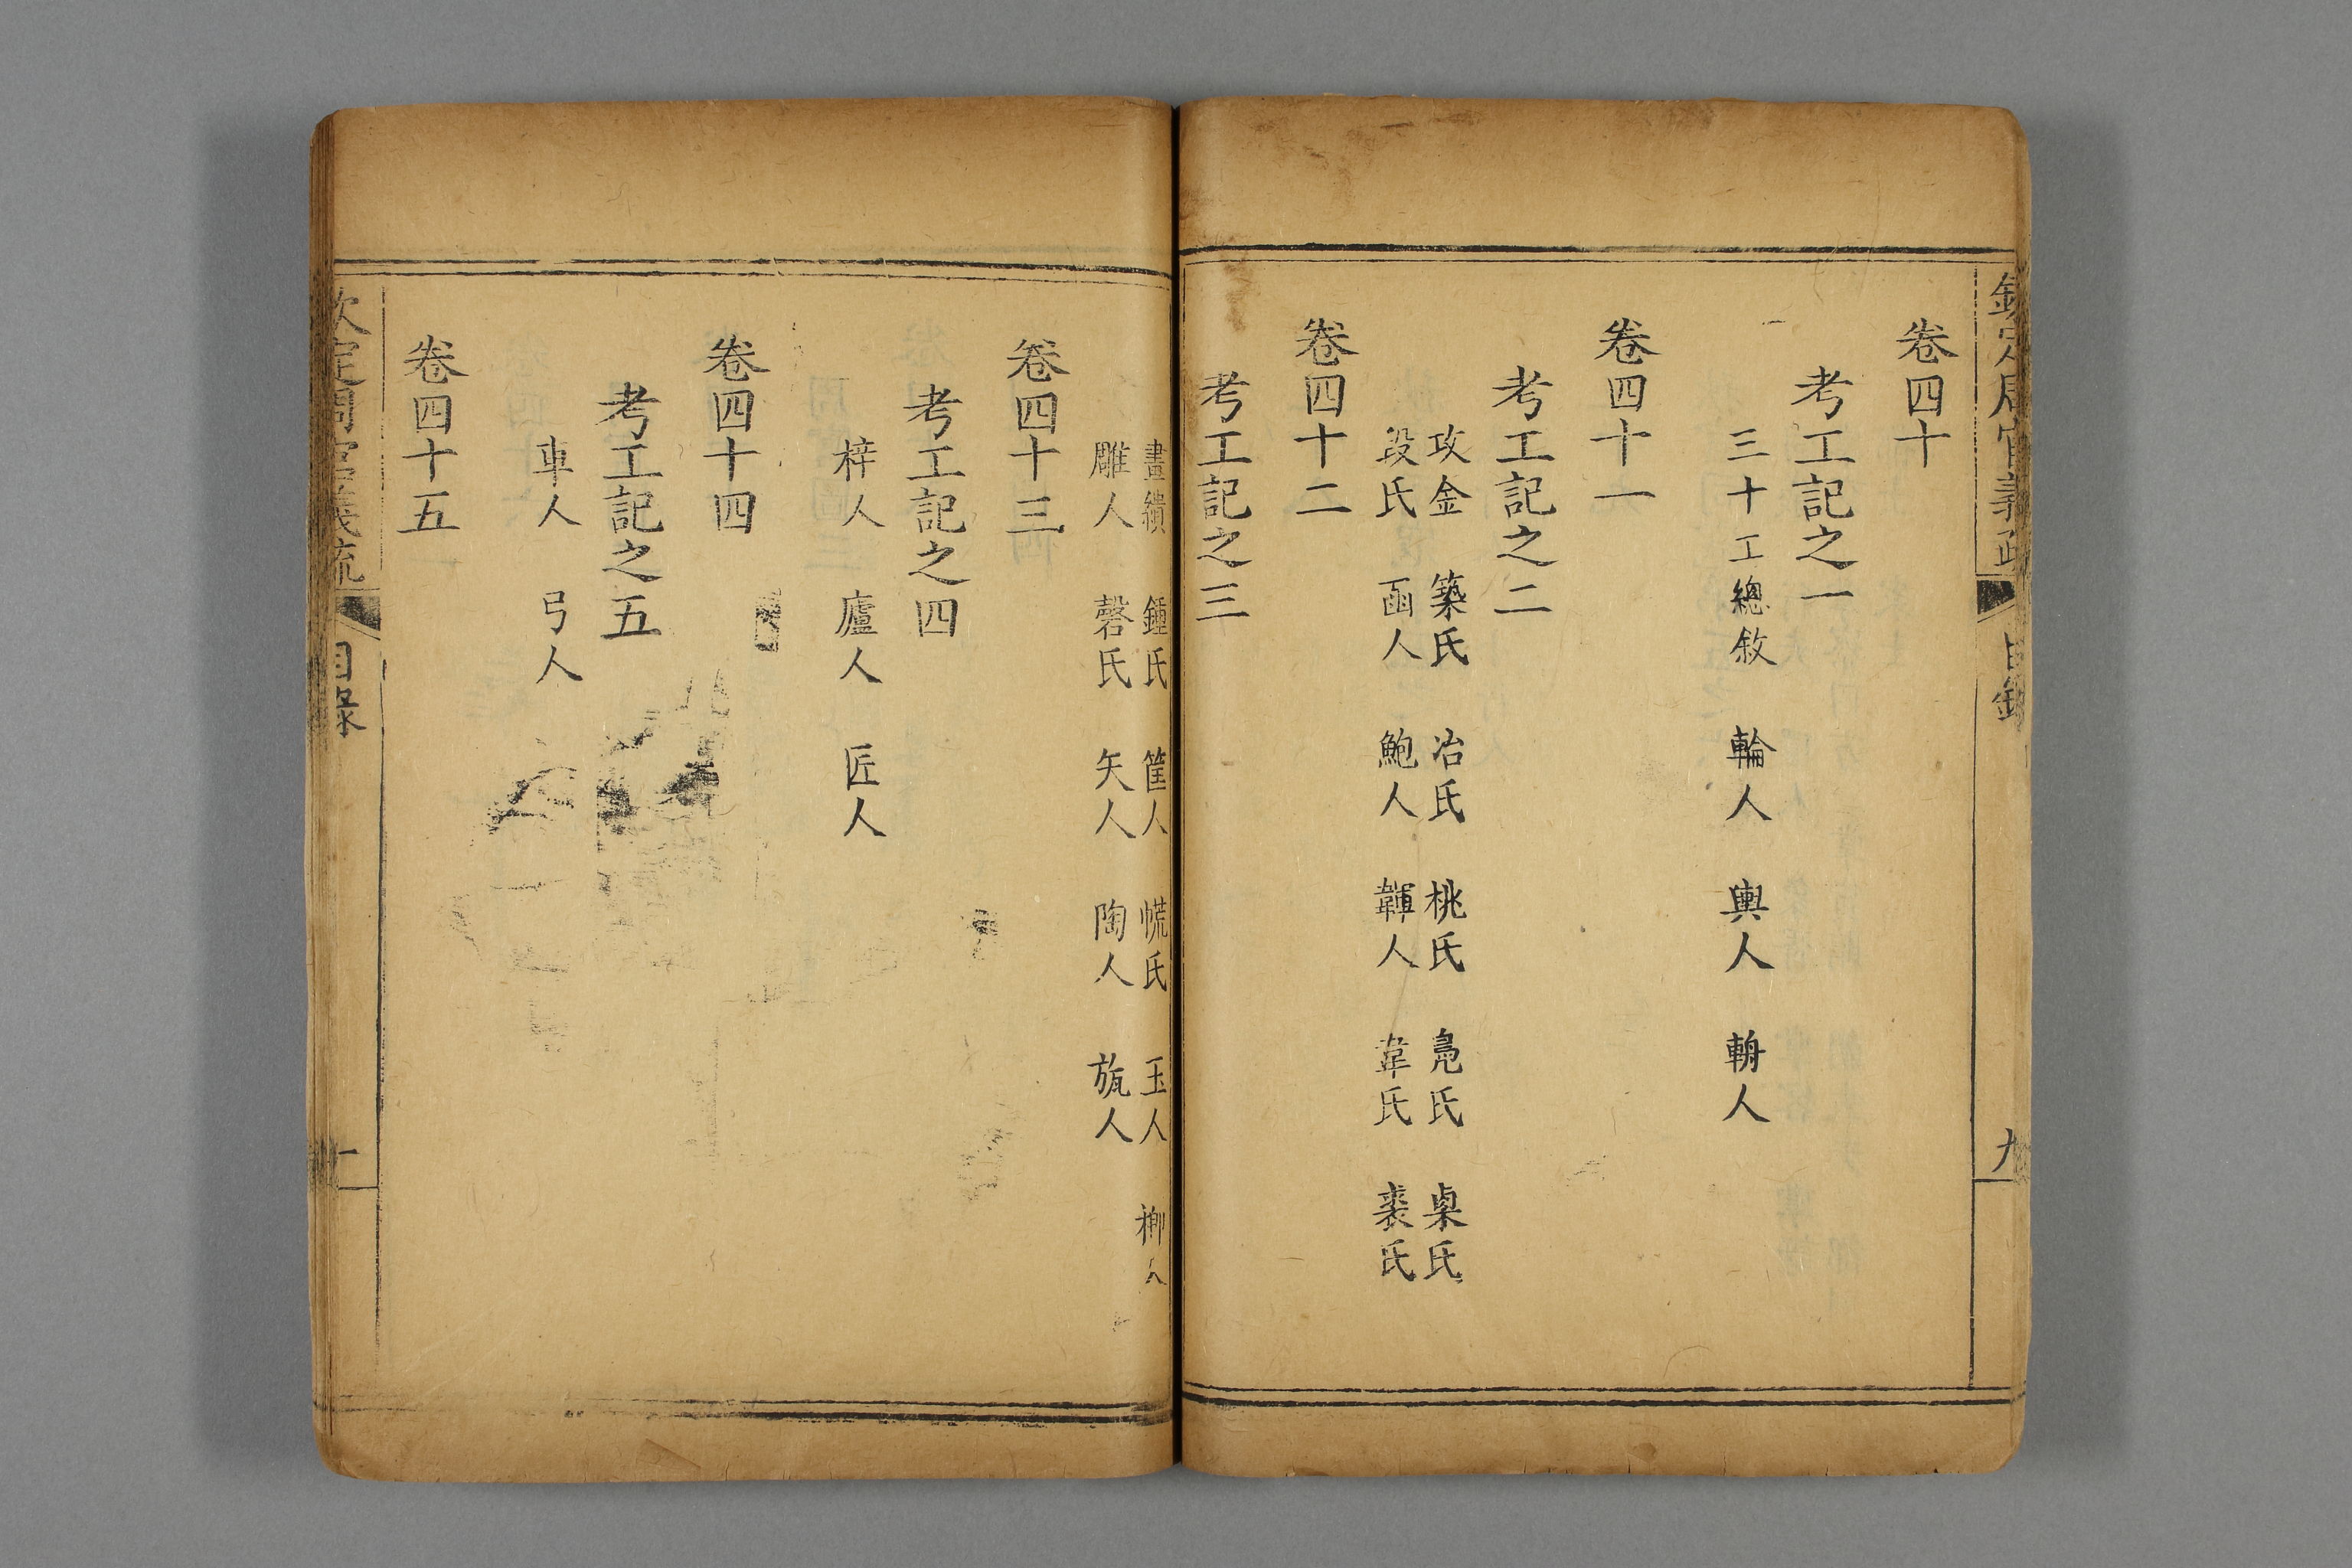 欽定周官義疏 目錄 九
卷四十
考工記之一
三十工總敘 輪人 輿人 輈人
卷四十一
考工記之二
攻金 築氏 冶氏 桃氏 鳧氏 㮚氏
段氏 函人 鮑人 韗人 韋氏 裘氏
卷四十二
考工記之三
畫繢 鍾氏 筐人 㡛氏 玉人 楖人
雕人 磬氏 矢人 陶人 旊人
卷四十三
考工記之四
梓人 廬人 匠人
卷四十四
考工記之五
車人 弓人
卷四十五
欽定周官義疏 目錄